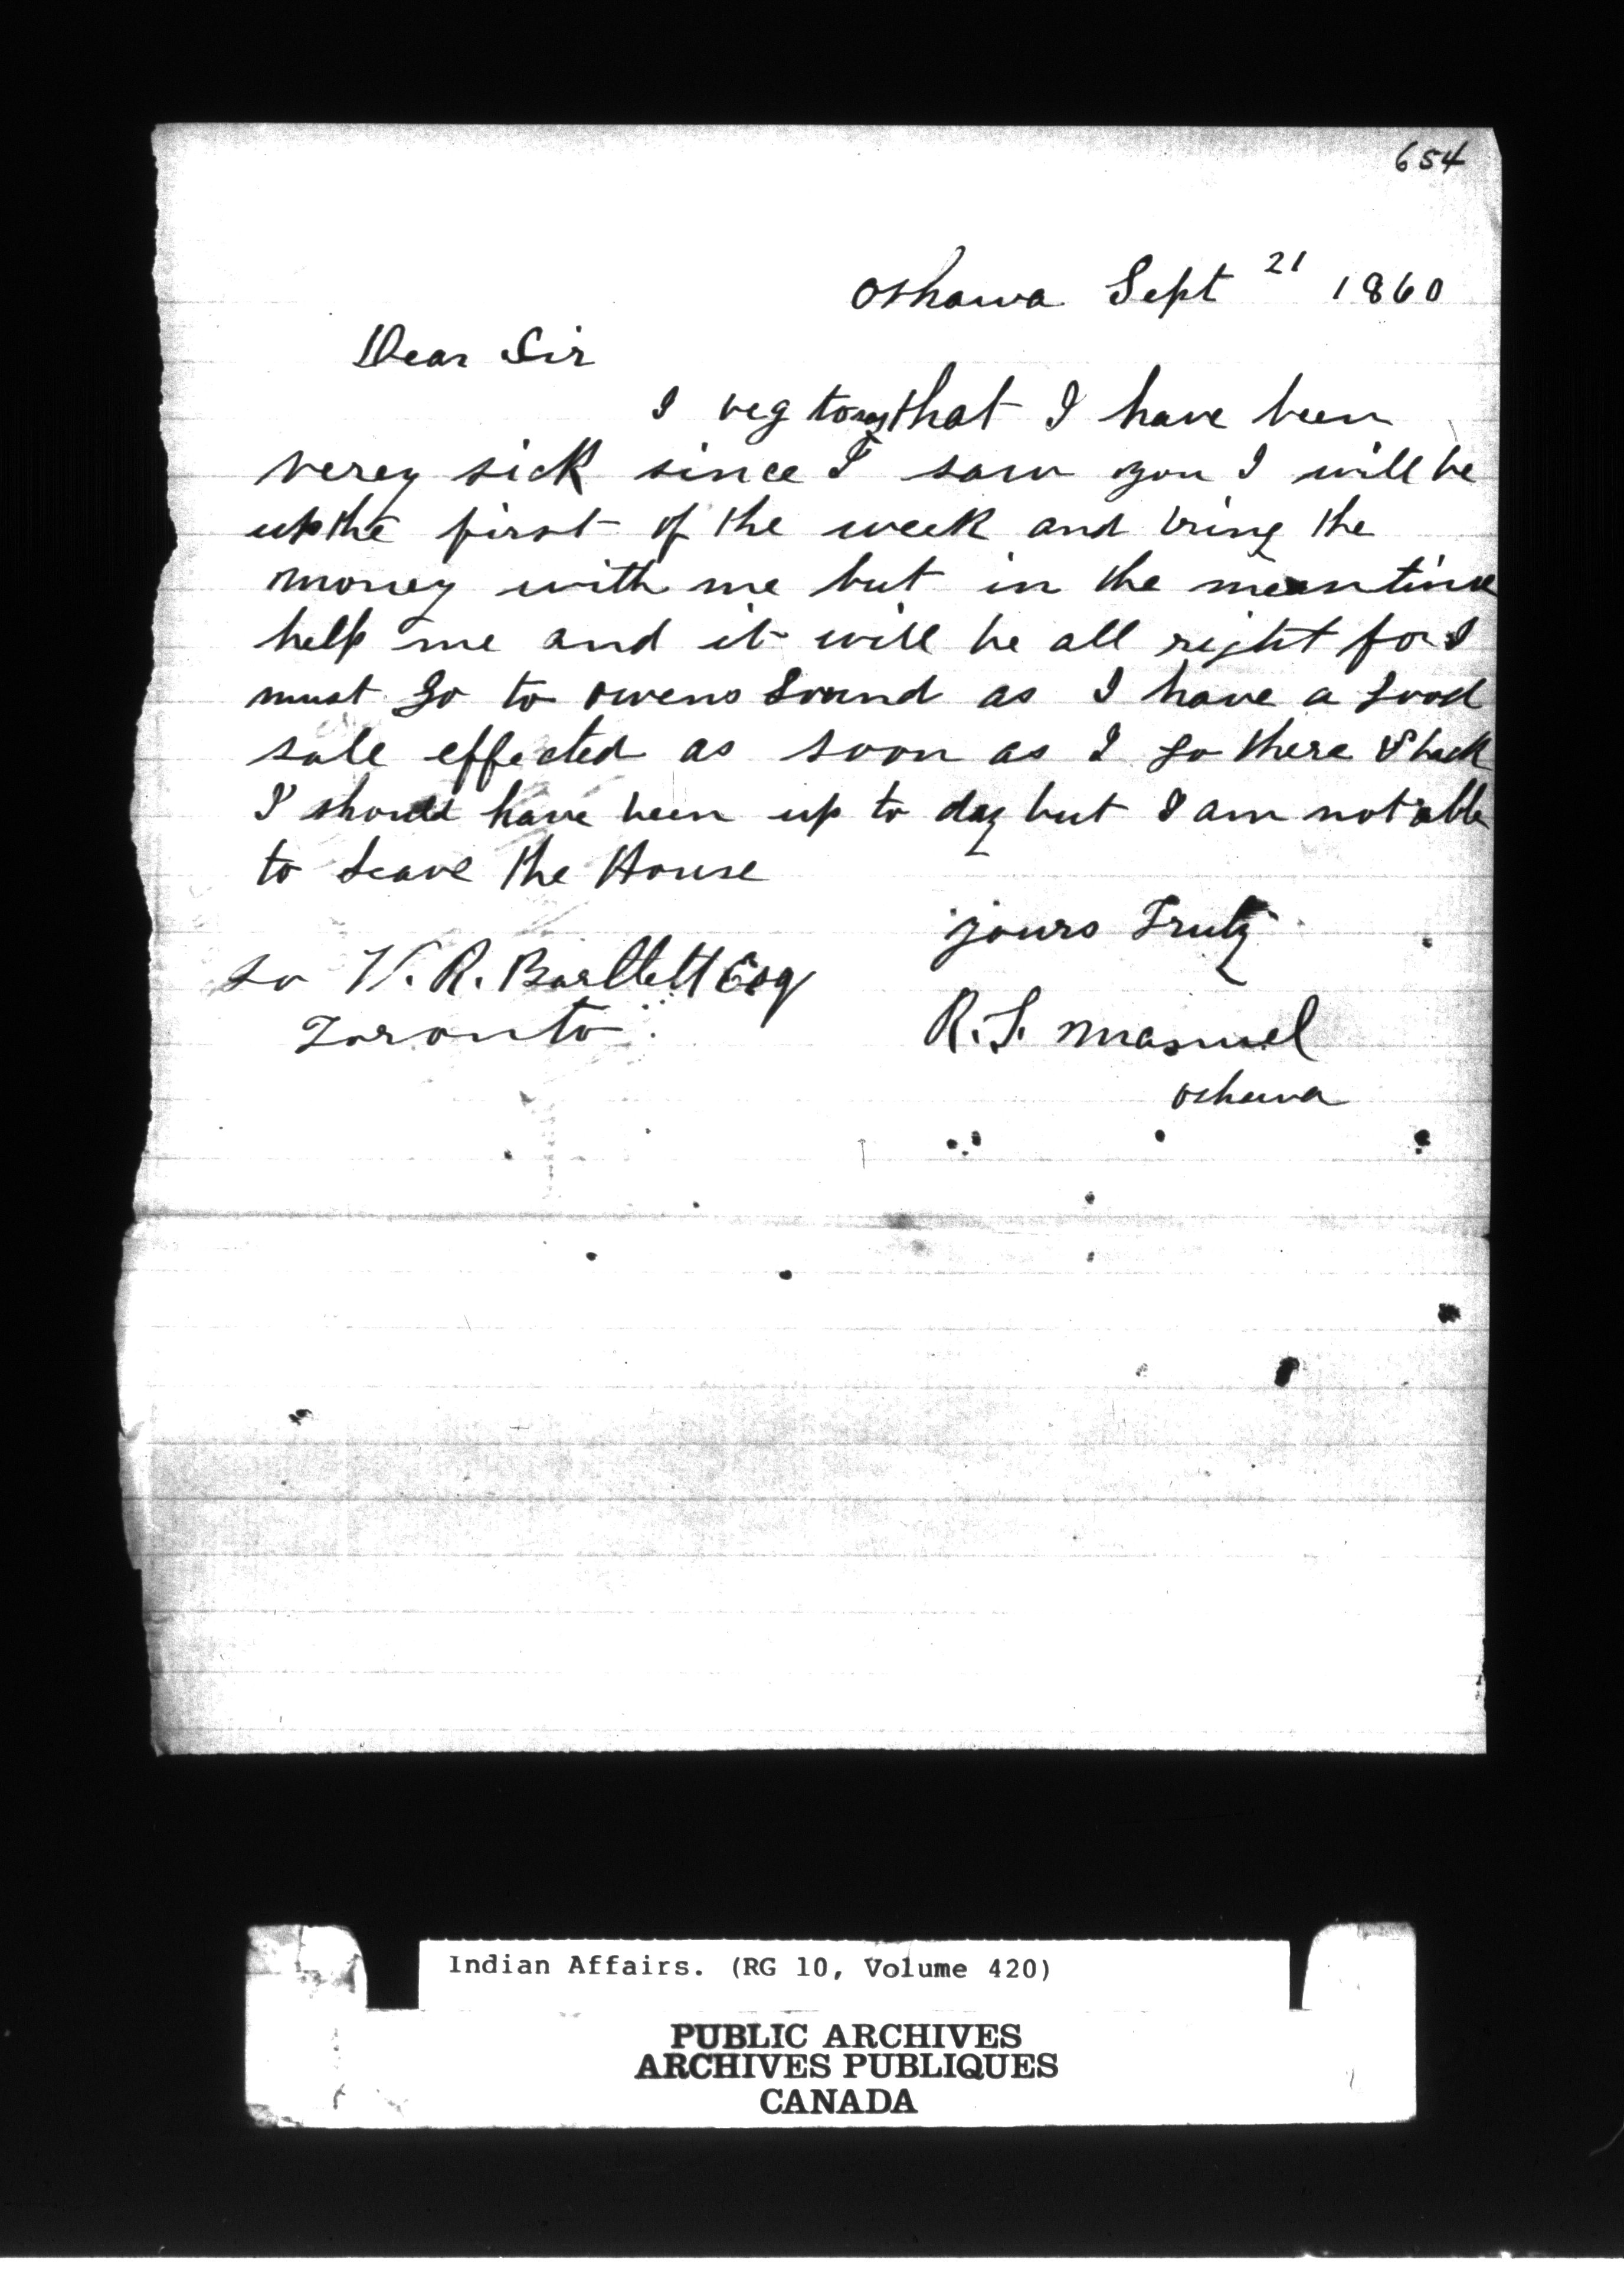 654
Oshawa Sept 21 1860
Dear Sir
I beg to say that I have been
verey sick since I saw you I will be
up the first of the week and bring the
money with me but in the meantime
help me and it will be all right for I
must go to owens Sound as I have a good
sale effected as soon as I go there & back
I should have been up to day but I am not able
to Leave the House
yours Truly
to V. R. Bartlett Esq
Toronto
R. S.
oshawa
Indian Affairs. (RG 10, Volume 420)
PUBLIC ARCHIVES
ARCHIVES PUBLIQUES
CANADA